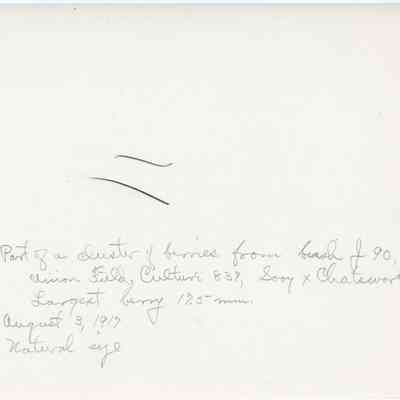 Part of a cluster of berries from bush J 90,
Union Field, Culture 837, Sooy x Chatswor
Largest berry 17.5 mm.
August 3, 1917
Natural size